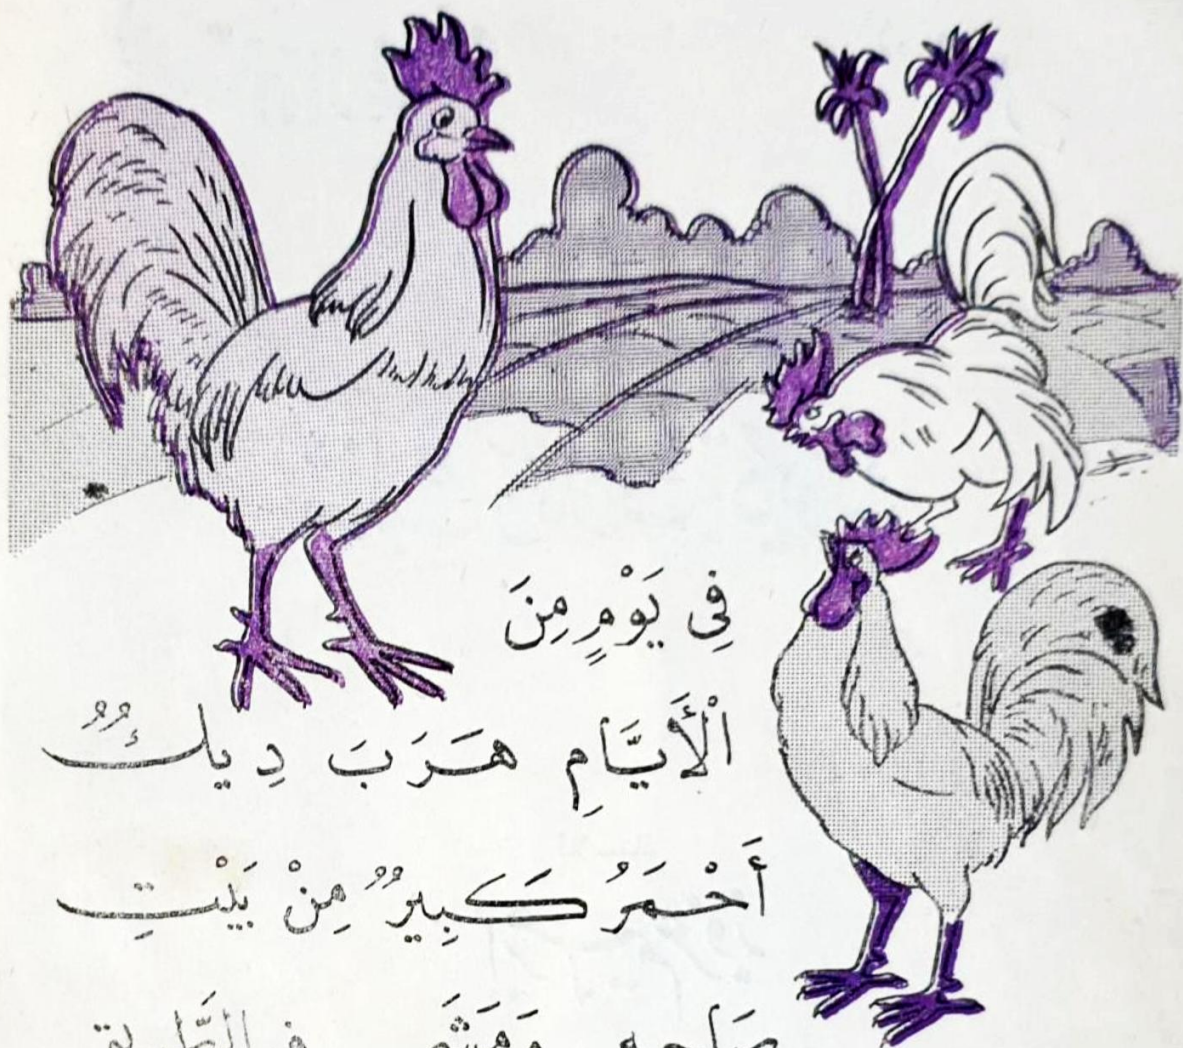 فِي يَوْمٍ مِنَ
الْأَيَّامِ هَرَبَ دِيكٌ
أَحْمَرُ كَبِيرٌ مِنْ بَيْتِ